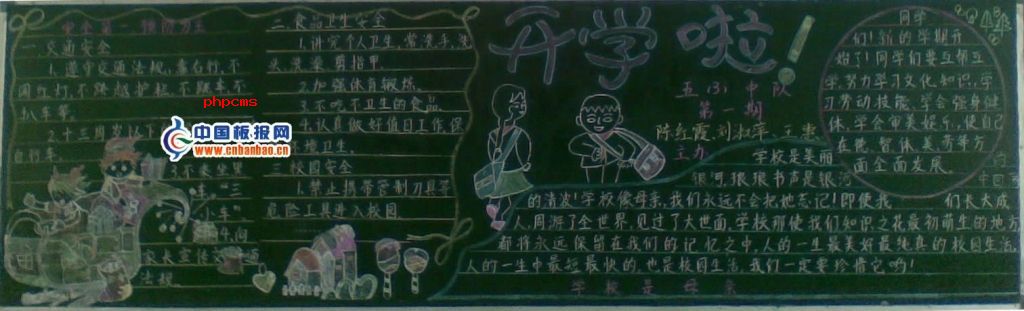 安全第一,预防为主
一 交通安全
1.遵守交通法规,靠右行,不
闯红灯,不跨越护栏,不随车,不
扒车等。
2.十三周岁以下
自行车。
3.不乘坐
车,"三
小车"。
年间
家长宣传交通
法规。
二 食品卫生安全
1.讲究个人卫生,常洗手,洗
头,洗澡,剪指甲。
2.加强体育锻炼。
3.不吃不卫生的食品。
4.认真做好值日工作,保
环境卫生。
三 校园安全
1.禁止携带管制刀具等
危险工具进入校园。
phpcms
中国板报网
www.cnbanbao.cn
开学啦!
五(3)中队
第一期
陈红霞,刘淑萍,王
王力
学校是美丽
银河,琅琅书声是银河
的清波!学校像母亲,我们永远不会把她忘记!即使我们长大成
人,周游了全世界,见过了大世面,学校那使我们知识之花最初萌生的地方
都将永远保留在我们的记忆之中,人的一生最美好最纯真的校园生活,
人的一生中最短最快的,也是校园生活,我们一定要珍惜它哟!
学校是母亲
同学
们!新的学期开
始了!同学们要互帮互
学,努力学习文化知识,学
习劳动技能,学会强身健
体,学会审美娱乐,使自己
在德智体美劳等方
面全面发展。